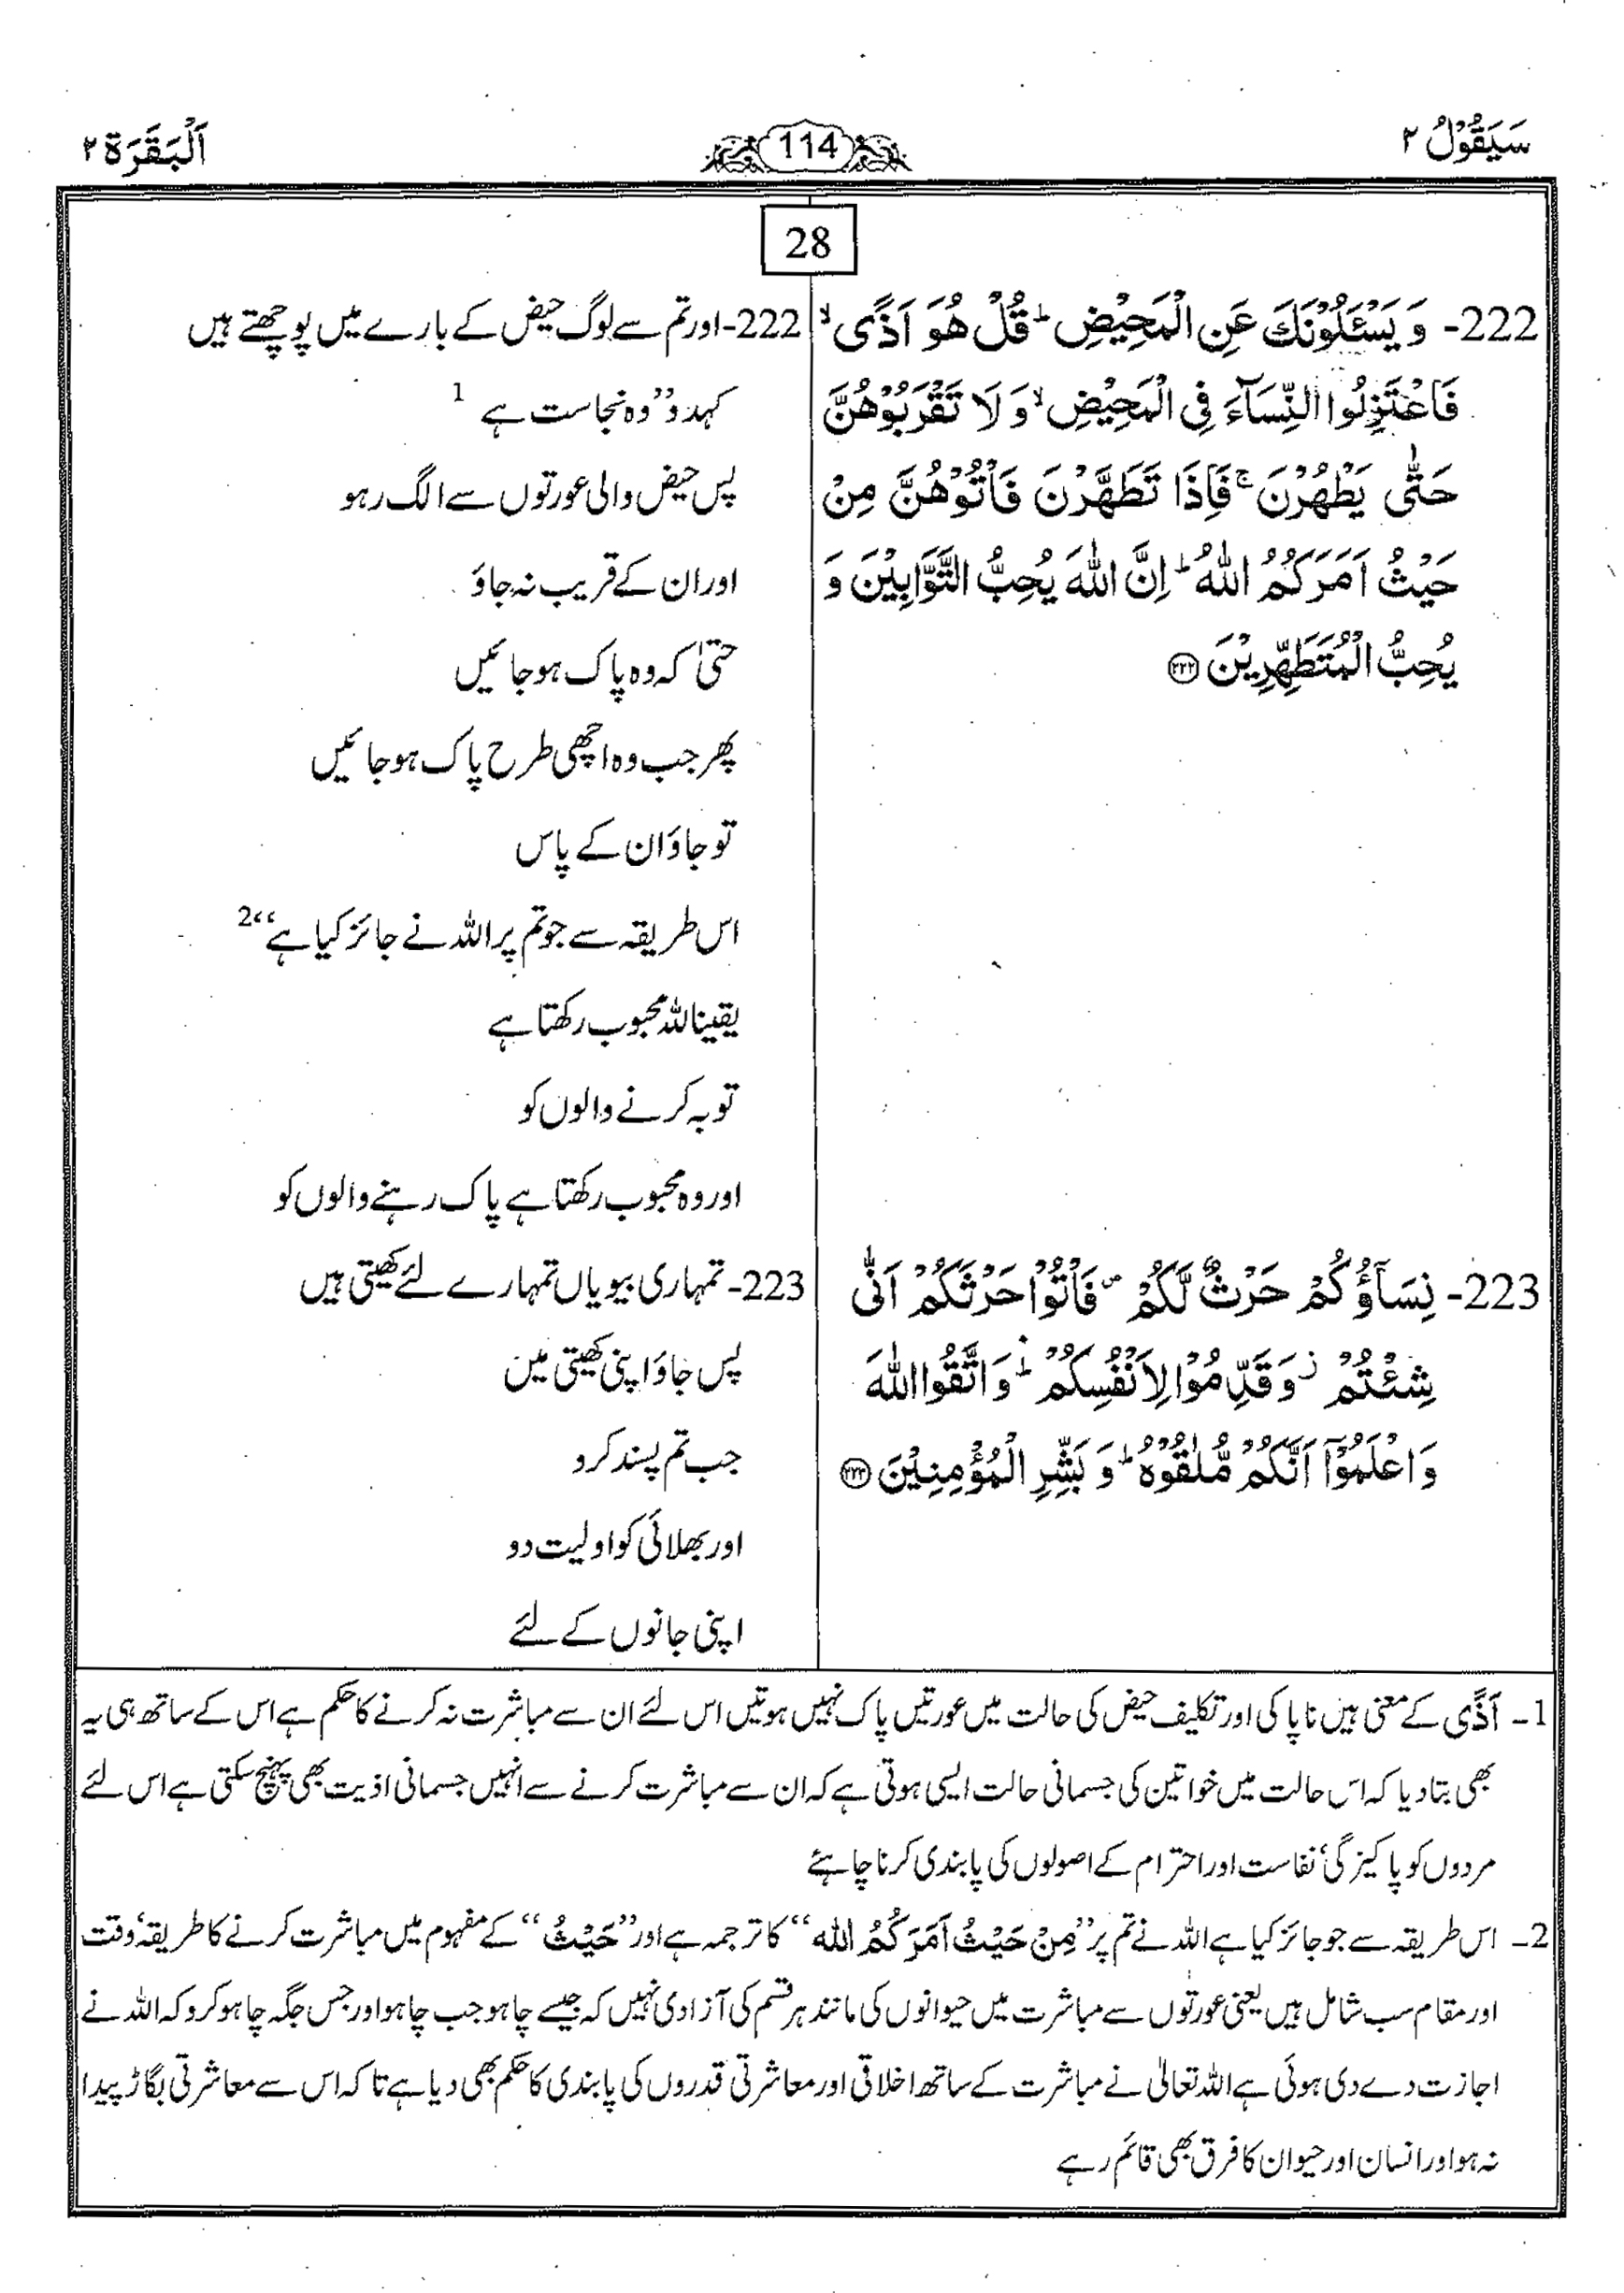 سَيَقُوْلُ ۲
114
اَلْبَقَرَة ۲
28
222- وَ يَسْـَٔلُوْنَكَ عَنِ الْمَحِيْضِ ؕ قُلْ هُوَ اَذًى ۙ
فَاعْتَزِلُوا النِّسَآءَ فِى الْمَحِيْضِ ۙ وَ لَا تَقْرَبُوْهُنَّ
حَتّٰى يَطْهُرْنَ ۚ فَاِذَا تَطَهَّرْنَ فَاْتُوْهُنَّ مِنْ
حَيْثُ اَمَرَكُمُ اللّٰهُ ؕ اِنَّ اللّٰهَ يُحِبُّ التَّوَّابِيْنَ وَ
يُحِبُّ الْمُتَطَهِّرِيْنَ ۲۲۲
222- اور تم سے لوگ حیض کے بارے میں پوچھتے ہیں
کہدو ’’وہ نجاست ہے 1
پس حیض والی عورتوں سے الگ رہو
اور ان کے قریب نہ جاؤ
حتیٰ کہ وہ پاک ہو جائیں
پھر جب وہ اچھی طرح پاک ہو جائیں
تو جاؤ ان کے پاس
اس طریقہ سے جو تم پر اللہ نے جائز کیا ہے‘‘ 2
یقینا اللہ محبوب رکھتا ہے
توبہ کرنے والوں کو
اور وہ محبوب رکھتا ہے پاک رہنے والوں کو
223- نِسَآؤُكُمْ حَرْثٌ لَّكُمْ ۪ فَاْتُوْا حَرْثَكُمْ اَنّٰى
شِئْتُمْ ؗ وَ قَدِّمُوْا لِاَنْفُسِكُمْ ؕ وَ اتَّقُوا اللّٰهَ
وَ اعْلَمُوْۤا اَنَّكُمْ مُّلٰقُوْهُ ؕ وَ بَشِّرِ الْمُؤْمِنِيْنَ ۲۲۳
223- تمہاری بیویاں تمہارے لئے کھیتی ہیں
پس جاؤ اپنی کھیتی میں
جب تم پسند کرو
اور بھلائی کو اولیت دو
اپنی جانوں کے لئے
1- اَذًى کے معنی ہیں ناپاکی اور تکلیف حیض کی حالت میں عورتیں پاک نہیں ہوتیں اس لئے ان سے مباشرت نہ کرنے کا حکم ہے اس کے ساتھ ہی یہ
بھی بتا دیا کہ اس حالت میں خواتین کی جسمانی حالت ایسی ہوتی ہے کہ ان سے مباشرت کرنے سے انہیں جسمانی اذیت بھی پہنچ سکتی ہے اس لئے
مردوں کو پاکیزگی‘ نفاست اور احترام کے اصولوں کی پابندی کرنا چاہئے
2- اس طریقہ سے جو جائز کیا ہے اللہ نے تم پر ’’مِنْ حَيْثُ اَمَرَكُمُ الله‘‘ کا ترجمہ ہے اور ’’حَيْثُ‘‘ کے مفہوم میں مباشرت کرنے کا طریقہ‘ وقت
اور مقام سب شامل ہیں یعنی عورتوں سے مباشرت میں حیوانوں کی مانند ہر قسم کی آزادی نہیں کہ جیسے چاہو جب چاہو اور جس جگہ چاہو کرو کہ اللہ نے
اجازت دے دی ہوئی ہے اللہ تعالیٰ نے مباشرت کے ساتھ اخلاقی اور معاشرتی قدروں کی پابندی کا حکم بھی دیا ہے تاکہ اس سے معاشرتی بگاڑ پیدا
نہ ہو اور انسان اور حیوان کا فرق بھی قائم رہے